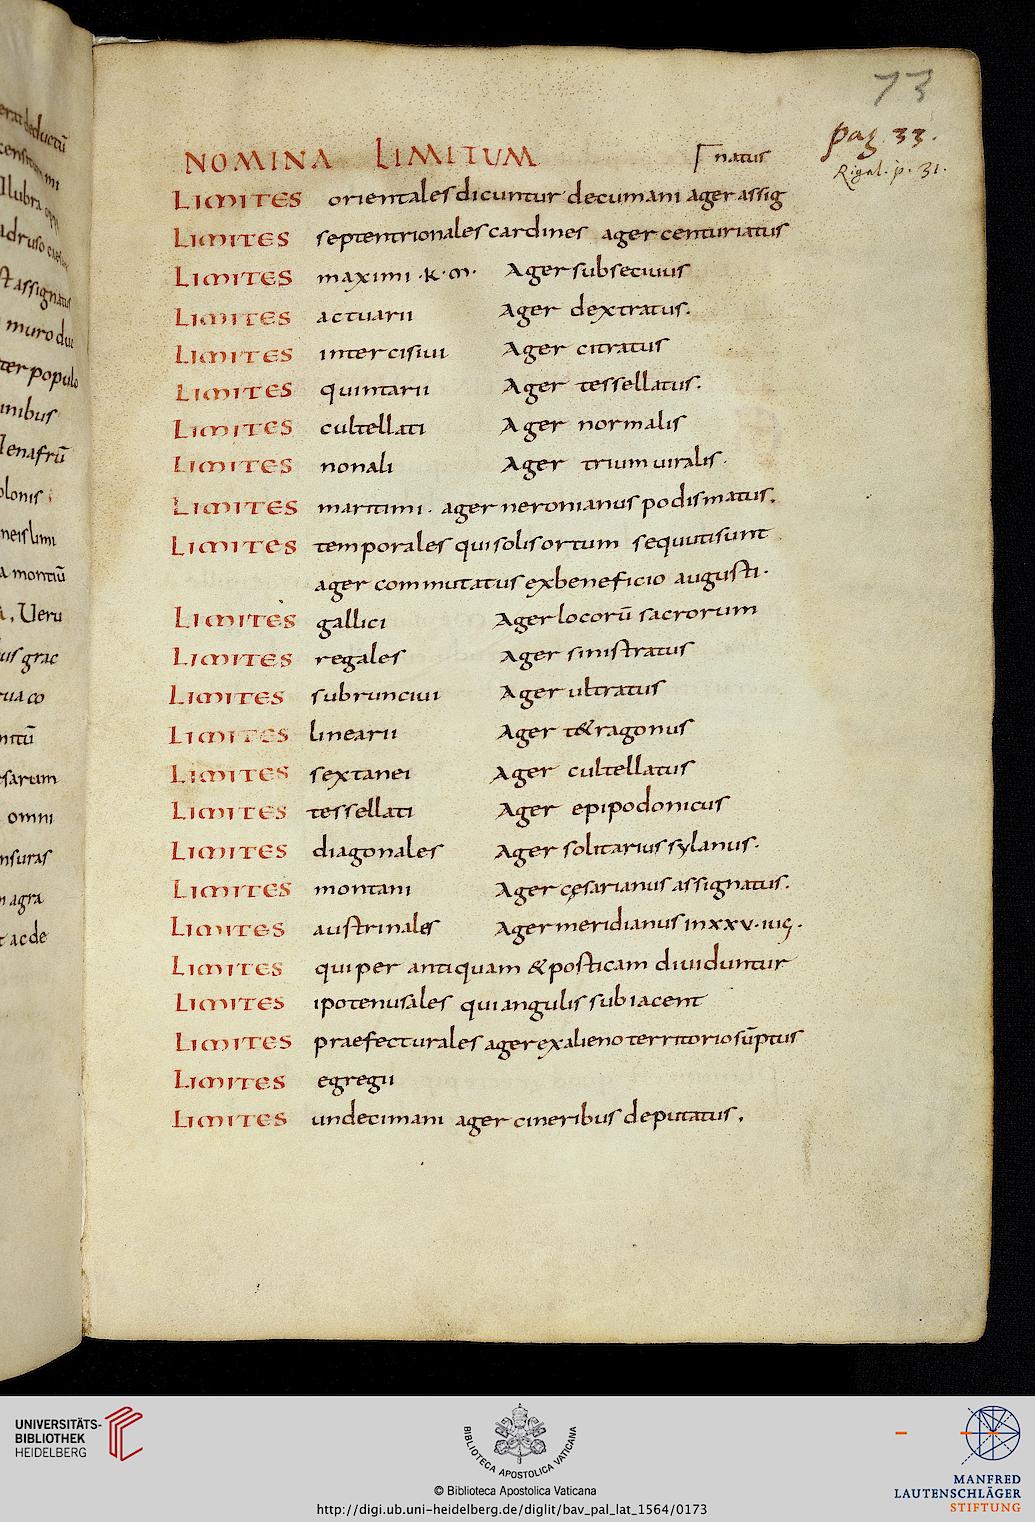 73
pag. 33.
Rigal. p. 31.
NOMINA LIMITUM natus
LIMITES orientales dicuntur decumani ager assig
LIMITES septentrionales cardines ager centuriatus
LIMITES maximi ·k·m· Ager subsecivus
LIMITES actuarii Ager dextratus.
LIMITES intercisivi Ager citratus
LIMITES quintarii Ager tessellatus.
LIMITES cultellati Ager normalis
LIMITES nonali Ager triumviralis.
LIMITES maritimi. ager neronianus podismatus.
LIMITES temporales qui solis ortum sequuti sunt
ager commutatus ex beneficio augusti.
LIMITES gallici Ager locorū sacrorum
LIMITES regales Ager sinistratus
LIMITES subruncivi Ager ultratus
LIMITES linearii Ager t&ragonus
LIMITES sextanei Ager cultellatus
LIMITES tessellati Ager epipodonicus
LIMITES diagonales Ager solitarius sylanus.
LIMITES montani Ager cęsarianus assignatus.
LIMITES austrinales Ager meridianus in xxv·iug.
LIMITES qui per antiquam & posticam dividuntur
LIMITES ipotenusales qui angulis subiacent
LIMITES praefecturales ager ex alieno territorio sūptus
LIMITES egregii
LIMITES undecimani ager cineribus deputatus.
UNIVERSITÄTS-
BIBLIOTHEK
HEIDELBERG
BIBLIOTECA APOSTOLICA VATICANA
© Biblioteca Apostolica Vaticana
http://digi.ub.uni-heidelberg.de/diglit/bav_pal_lat_1564/0173
MANFRED
LAUTENSCHLÄGER
STIFTUNG